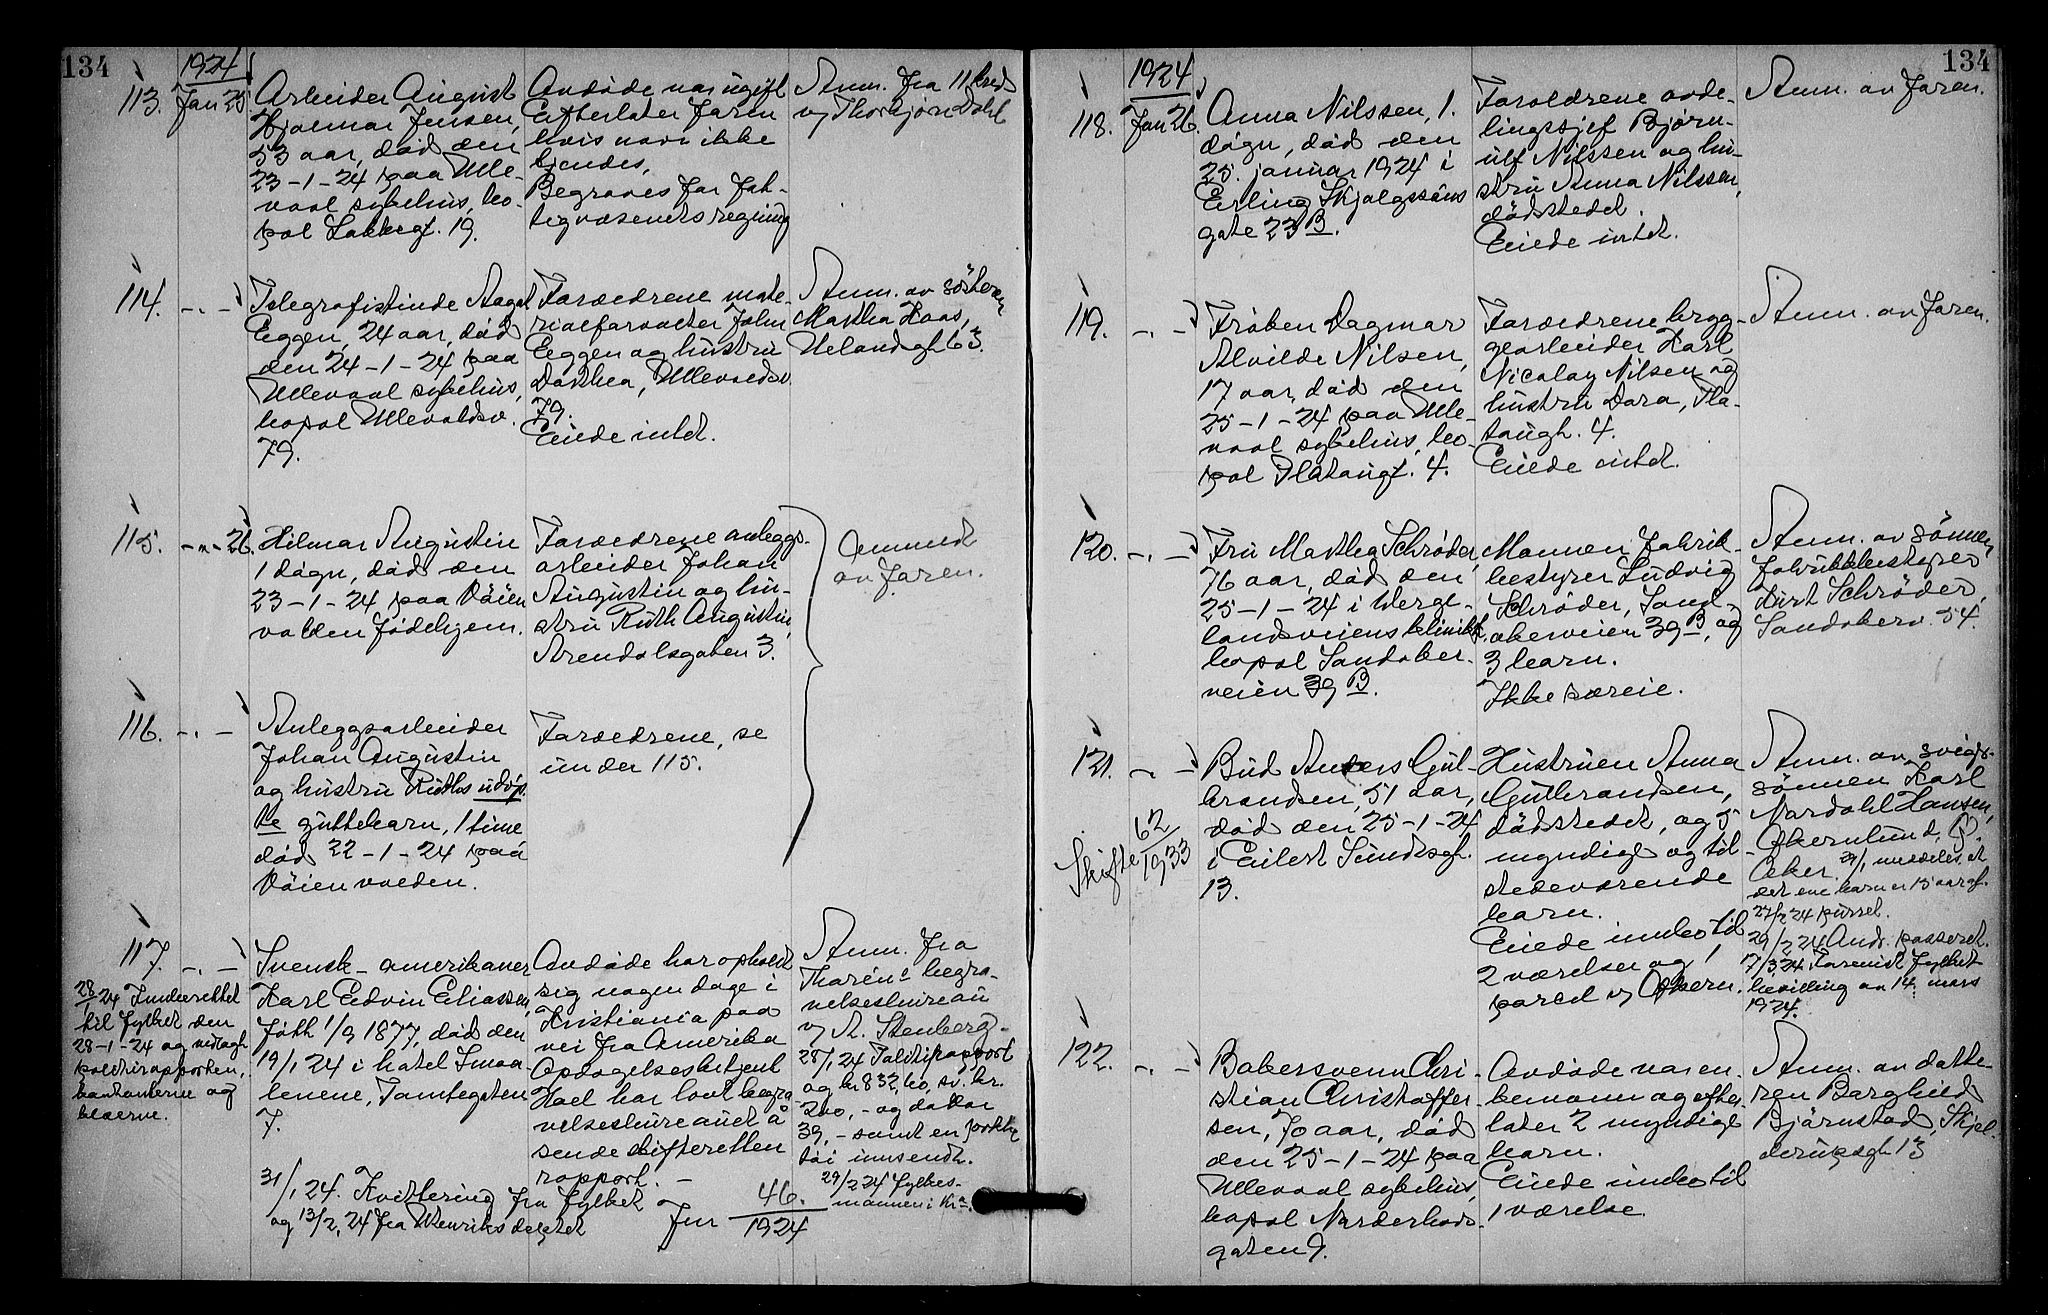 134
1924
113. Jan 25
Arbeider August
Hjalmar Jensen,
53 aar, død den
23-1-24 paa Ulle-
vaal sykehus, bo-
pæl Lakkegt. 19.
Avdøde var ugift
Efterlater faren
hvis navn ikke
kjendes.
Begraves for fat-
tigvæsenets regning
Anm. fra 11 kred
v/ Thorbjørn Dahl
114. -"-
Telegrafistinde Aagot
Eggen, 24 aar, død
den 24-1-24 paa
Ullevaal sykehus,
bopæl Ullevoldsv.
79.
Forældrene mate-
rialforvalter John
Eggen og hustru
Dorthea, Ullevoldsv.
79.
Eiede intet.
Anm. av søsteren
Martha Haas,
Uelandsgt 63.
115. -"- 26.
Hilmar Augustin
1 døgn, død den
23-1-24, paa Vøien
volden fødehjem.
Forældrene anleggs-
arbeider Johan
Augustin og hu-
stru Ruth Augustin,
Arendalsgaten 3.
Anmeldt
av faren.
116. -"-
Anleggsarbeider
Johan Augustin
og hustru Ruths udøp-
te guttebarn, 1 time
død 22-1-24 paa
Vøienvolden.
Forældrene, se
under 115.
117. -"-
Svensk-amerikaner
Karl Edvin Eliassen,
født 1/9 1877, død den
19/1 24 i hotel Smaa-
lenene, Tomtegaten
7.
Avdøde har opholdt
sig nogen dage i
Kristiania paa
vei fra Amerika
Opdagelsesbetjent
Hoel har lovt begra
velsesbureauet å
sende skifteretten
rapport. -
Anm. fra
Tharens begra-
velsesbureau
v/ A. Stenberg-
28/1 24 Politirapport
og kr 832,60, sv. kr.
200,- og dollar
39,- samt en
tøi innsendt.
29/2 24 fylkes-
mannen i Kr.a.
28/1 24 Innberettet
til fylket den
28-1-24 og vedlagt
politirapporten,
kontanterne og
klærne.
31/1 24. Kvittering fra fylket
og 13/2 24 fra Henriks
Jnr 46.
1924
134
1924
118. Jan 26.
Anna Nilssen, 1.
døgn, død den
25. januar 1924 i
Erling Skjalgssøns
gate 23 B.
Foreldrene avde-
lingssjef Bjørn-
ulf Nilssen og hu-
stru Anna Nilssen,
dødsstedet.
Eiede intet.
Anm. av faren.
119. -"-
Frøken Dagmar
Alvilde Nilsen,
17 aar, død den
25-1-24 paa Ulle-
vaal sykehus, bo-
pæl Platougt. 4.
Forældrene brygg-
gearbeider Karl
Nicolay Nilsen og
hustru Dora, Pla-
tougt. 4.
Eiede intet.
Anm. av faren.
120. -"-
Fru Martha Schrøder,
76 aar, død den
25-1-24 i Werge-
landsveiens klinikk,
bopæl Sandaker-
veien 39 B.
Mannen fabrik-
bestyrer Ludvig
Schrøder, Sand-
akerveien 39 B, og
3 barn.
Ikke særeie.
Anm. av sønnen
fabrikkbestyrer
Kurt Schrøder,
Sandakerv. 54.
121. -"-
Skifte 62/1933
Bud Anders Gul-
brandsen, 51 aar,
død den 25-1-24
i Eilert Sundtsgt.
13.
Hustruen Anna
Gulbrandsen,
dødsstedet, og 5
myndige og til
stedeværende
barn.
Eiede innbo til
2 værelser og 1
parcel v/ Økern.
Anm. av sviger-
sønnen Karl
Nordahl Hansen,
Økernlund, Ø.
Aker. 29/1 meddeles at
det ene barn er 15 aar gt.
27/2 24 purret.
29/2 24 Andr. passeret.
17/3 24 Forevist fylkets
bevilling av 14 mars
1924.
122. -"-
Bakersvenn Chri-
stian Christoffer-
sen, 70 aar, død
den 25-1-24 paa
Ullevaal sykehus,
bopæl Norderhovs-
gaten 9.
Avdøde var en-
kemann og efter-
later 2 myndige
barn.
Eiede innbo til
1 værelse.
Anm. av datte-
ren Borghild
Bjørnstad, Skjel-
derupsgt 13